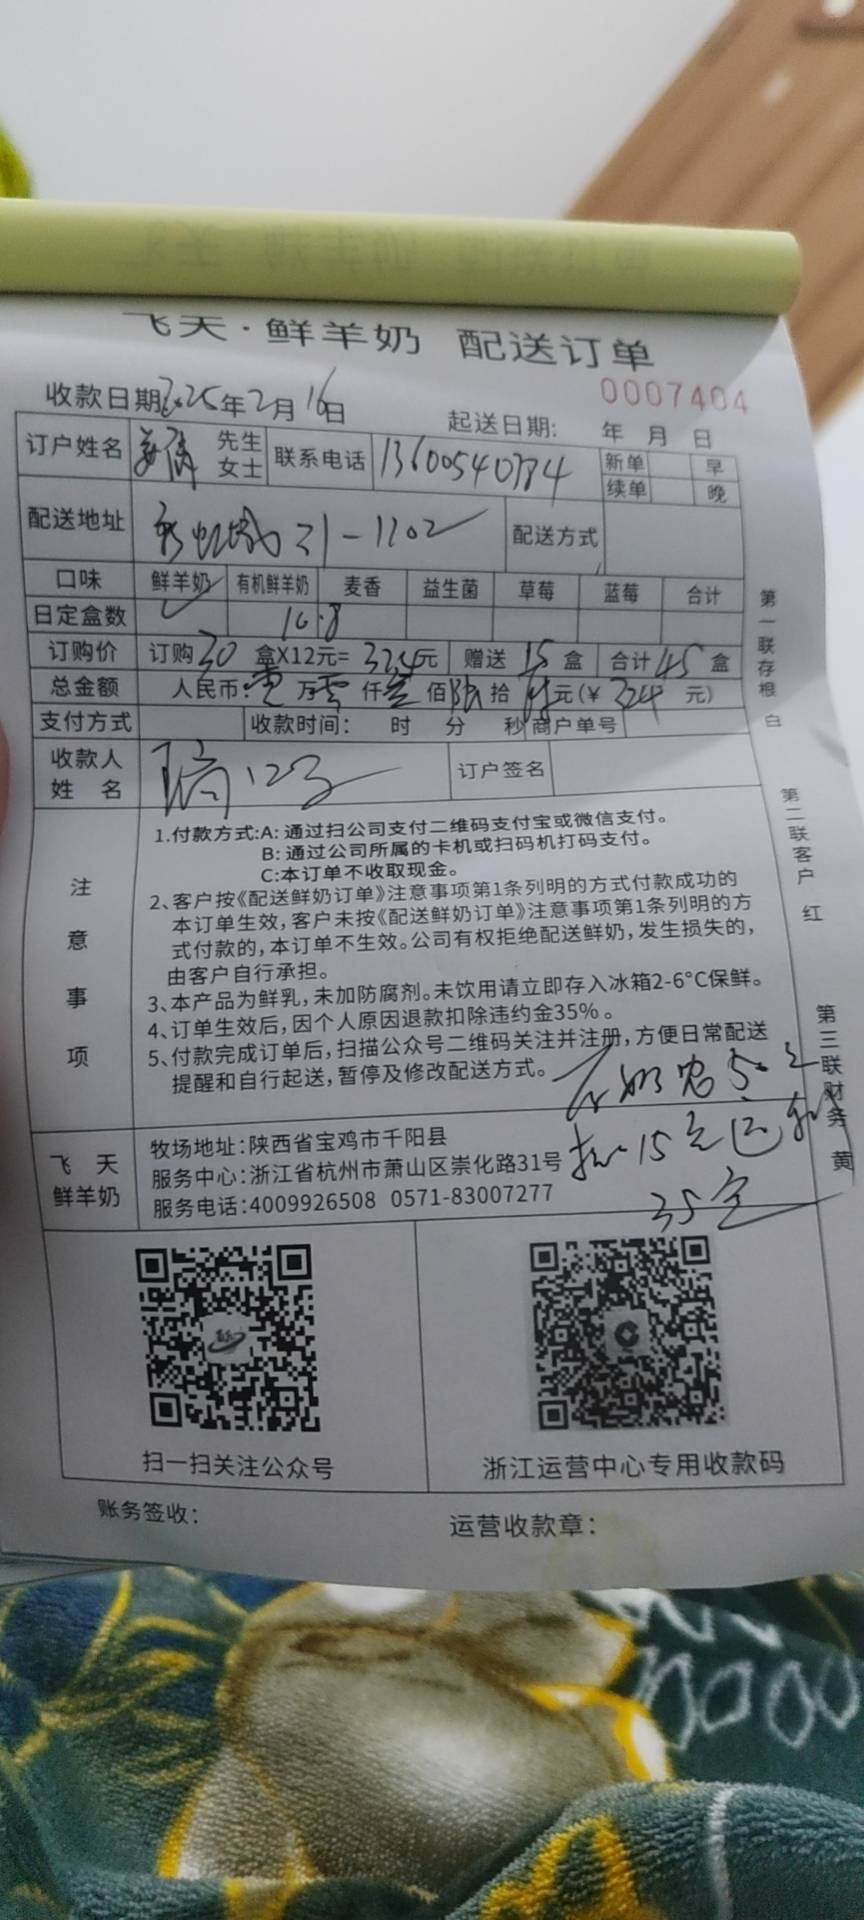 飞天·鲜羊奶 配送订单
0007404
收款日期:2025年2月16日 起送日期: 年 月 日
订户姓名 先生 女士 联系电话 新单 早
续单 晚
配送地址 彩虹城21-1102 配送方式
口味 鲜羊奶 有机鲜羊奶 麦香 益生菌 草莓 蓝莓 合计
日定盒数 10.8
订购价 订购30盒X12元=324元 赠送15盒 合计45盒
总金额 人民币: 万零仟叁佰 拾 元(¥324元)
支付方式 收款时间: 时 分 秒 商户单号
收款人姓名 订户签名
注意事项
1.付款方式:A:通过扫公司支付二维码支付宝或微信支付。
B:通过公司所属的卡机或扫码机打码支付。
C:本订单不收取现金。
2、客户按《配送鲜奶订单》注意事项第1条列明的方式付款成功的
本订单生效,客户未按《配送鲜奶订单》注意事项第1条列明的方
式付款的,本订单不生效。公司有权拒绝配送鲜奶,发生损失的,
由客户自行承担。
3、本产品为鲜乳,未加防腐剂。未饮用请立即存入冰箱2-6°C保鲜。
4、订单生效后,因个人原因退款扣除违约金35%。
5、付款完成订单后,扫描公众号二维码关注并注册,方便日常配送
提醒和自行起送,暂停及修改配送方式。
15元
35
飞天鲜羊奶
牧场地址:陕西省宝鸡市千阳县
服务中心:浙江省杭州市萧山区崇化路31号
服务电话:4009926508 0571-83007277
扫一扫关注公众号 浙江运营中心专用收款码
账务签收: 运营收款章:
第一联存根 白
第二联客户 红
第三联财务 黄